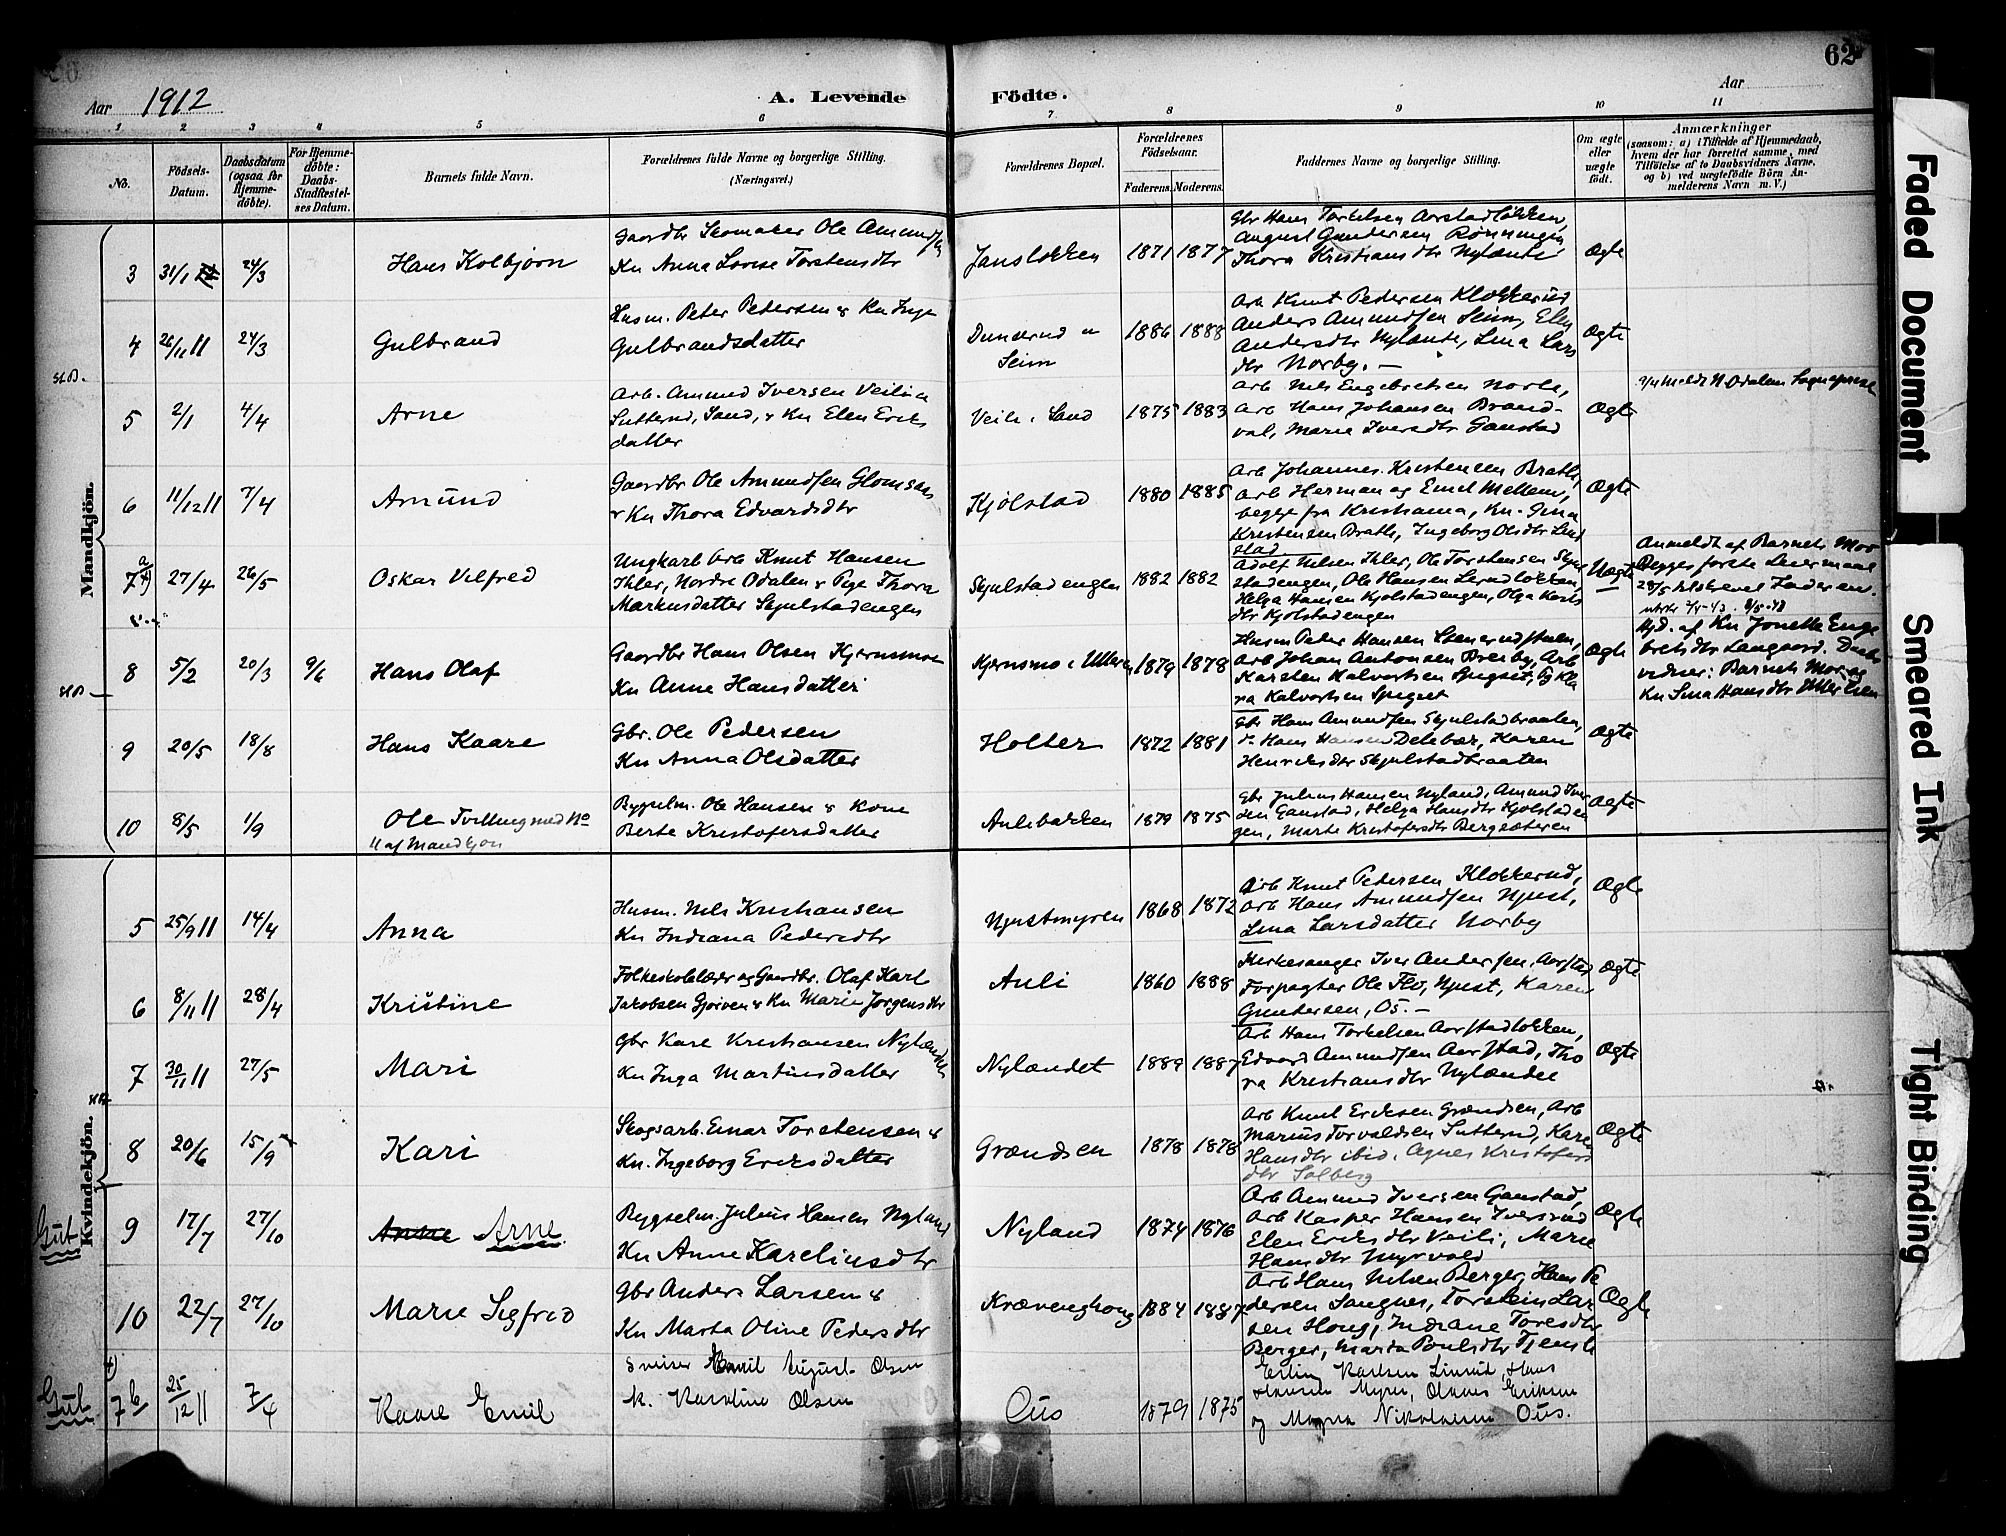 62
Aar 1912
A. Levende Födte.
Aar
1 2 3 4 5 6 7 8 9 10 11
No.
Födsels-Datum.
Daabsdatum (ogsaa for Hjemmedöbte).
For Hjemmedöbte: Daabs-Stadfæstelses Datum.
Barnets fulde Navn.
Forældrenes fulde Navne og borgerlige Stilling. (Næringsvei.)
Forældrenes Bopæl.
Forældrenes Födselsaar.
Faderens. Moderens.
Faddernes Navne og borgerlige Stilling.
Om ægte eller uægte født.
Anmærkninger
(saasom: a) i Tilfælde af Hjemmedaab, hvem der har forrettet samme, med Tilföielse af to Daabsvidners Navne, og b) ved uægtefödte Börn Anmelderens Navn m. V.)
Mandkjön.
3 31/1 24/3 Hans Kolbjörn
Gaardbr Skomaker Ole Amundsen
Kn Anna Lovise Torstensdtr
Janslökken 1871 1877
Gbr Hans Torkelsen Aarstadlökken,
August Gundersen Rönningen,
Thora Kristiansdtr Nylænde
Ægte
4 26/11 11 24/3 Gulbrand
Husm. Peter Petersen & Kn Inga
Gulbrandsdatter
Dunderud u Seim 1886 1888
Arb Knut Pedersen Klokkerud
Anders Amundsen Seim, Elen
Andersdtr Nylænde, Lina Lars
dtr Norby. –
Ægte
5 2/1 4/4 Arne
Arb. Amund Iversen Veili u
Sutterud, Sand, & Kn Elen Eriks
datter
Veili i Sand 1875 1883
Arb Nils Engebretsen Norli,
Arb Hans Johansen Brand-
val, Marie Iversdtr Ganstad
Ægte
Meldt N. Odalen Sognepræst
6 11/12 11 7/4 Amund
Gaardbr Ole Amundsen Glomsaas
& Kn Thora Edvardsdtr
Kjölstad 1880 1885
Arb Johannes Kristensen Brathe,
Arb Herman og Emil Mellem,
begge fra Kristiania, Kn. Gina
Kristensen Brathe, Ingeborg Olsdtr Lin
stad
Ægte
7 a 27/4 26/5 Oskar Vilfred
Ungkarl Arb Knut Hansen
Ihler, Nordre Odalen & Pige Thora
Markusdatter Skjulstadengen
Skjulstadengen 1882 1882
Adolf Nilsen Ihler, Ole Torstensen Skjul
stadengen, Ole Hansen Lerudlökken,
Helga Hansen Kjolstadengen, Olga Karls
dtr Kjolstadengen
Uægte
Anmeldt af Barnets Mor
Begges förste Leiermaal
28/5 tilskrevet Faderen.
8 5/2 20/3 9/6 Hans Olaf
Gaardbr Hans Olsen Kjernsmo
Kn Anne Hansdatter
Kjernsmo i Ulleren 1879 1878
Husm Peder Hansen Stenerudstuen,
Arb Johan Antonsen Breiby, Arb
Karsten Halvorsen Spigset, Pg Kla
ra Halvorsen Spigset
Ægte
Hjd. af Kn Jonette Enge
bretsdtr Langaard. Daabs
vidner: Barnets Mor og
Kn Lina Hansdtr Ulleren
9 20/5 18/8 Hans Kaare
Gbr. Ole Pedersen
Kn Anna Olsdatter
Holter 1872 1881
Gbr Hans Amundsen Skjulstadbraaten,
Hans Hansen Delebær, Karen
Henriksdtr Skjulstadbraaten
Ægte
10 8/5 1/9 Ole Tvilling med No
11 af Mandkjön
Bygselm. Ole Hansen & Kone
Berte Kristofersdatter
Aulibakken 1879 1875
Gbr Julius Hansen Nyland, Amund Iver
sen Ganstad, Helga Hansdtr Kjolstaden
gen, Marte Kristofersdtr Bergsæteren
Ægte
Kvindekjön.
5 25/9 11 14/4 Anna
Husm. Nils Kristiansen
Kn Indiana Pedersdtr
Njustmyren 1868 1872
Arb Knut Pedersen Klokkerud,
Arb Hans Amundsen Njust,
Lina Larsdatter Norby
Ægte
6 8/11 11 28/4 Kristine
Folkeskolelærer og Gaardbr. Olaf Karl
Jakobsen Gjoiven & Kn Marie Jörgensdtr
Auli 1860 1888
Kirkesanger Iver Andersen, Aarstad
Forpagter Ole Flo, Njust, Karen
Gundersen, Os. –
Ægte
7 30/11 11 27/5 Mari
Gbr Karl Kristiansen Nylændet
Kn Inga Martinsdatter
Nylændet 1889 1887
Arb Hans Torkelsen Aarstadlökken,
Edvard Amundsen Aarstad, Tho
ra Kristiansdtr Nylændet
Ægte
8 20/6 15/9 Kari
Skogsarb. Einar Torstensen &
Kn. Ingeborg Eriksdatter
Grændsen 1878 1878
Arb Knut Eriksen Grændsen, Arb
Marius Torvaldsen Sutterud, Karen
Hansdtr ibid. Agnes Kristofers
dtr Solberg
Ægte
Gut 9 17/7 27/10 Anne Arne
Bygselm. Julius Hansen Nyland
Kn Anne Karelinsdtr
Nyland 1874 1876
Arb Amund Iversen Ganstad,
Arb Kasper Hansen Iversrud
Elen Eriksdtr Veili, Marie
Hansdtr Myrvold
Ægte
10 22/7 27/10 Marie Sigfrid
Gbr Anders Larsen &
Kn Marta Oline Pedersdtr
Krævenghoug 1884 1887
Arb Hans Nilsen Berger, Hans Pe
dersen Sangnes, Torstein Lar
sen Houg, Indiane Toresdtr
Berger, Marta Poulsdtr Tjensli
Ægte
Gut 7 b 25/12 11 7/4 Kaare Emil
Sveiser Emil August Olsen
K. Karoline Olsen
Ous 1879 1875
Erling Karlsen Linrud, Hans
Hansen Myrer, Olaves Eriksen
og Magna Nikolaisen Ous.
Faded Document
Smeared Ink
Tight Binding